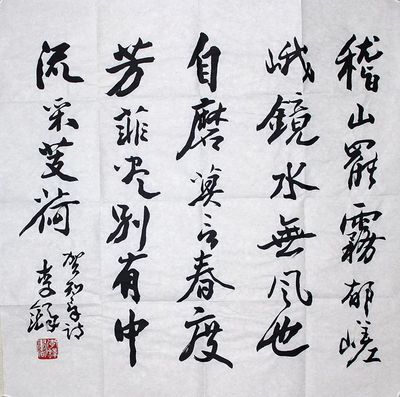 稽山罷霧郁嵯
峨鏡水無风也
自磨莫言春度
芳菲尽别有中
流采芰荷
贺知章诗
李鐸